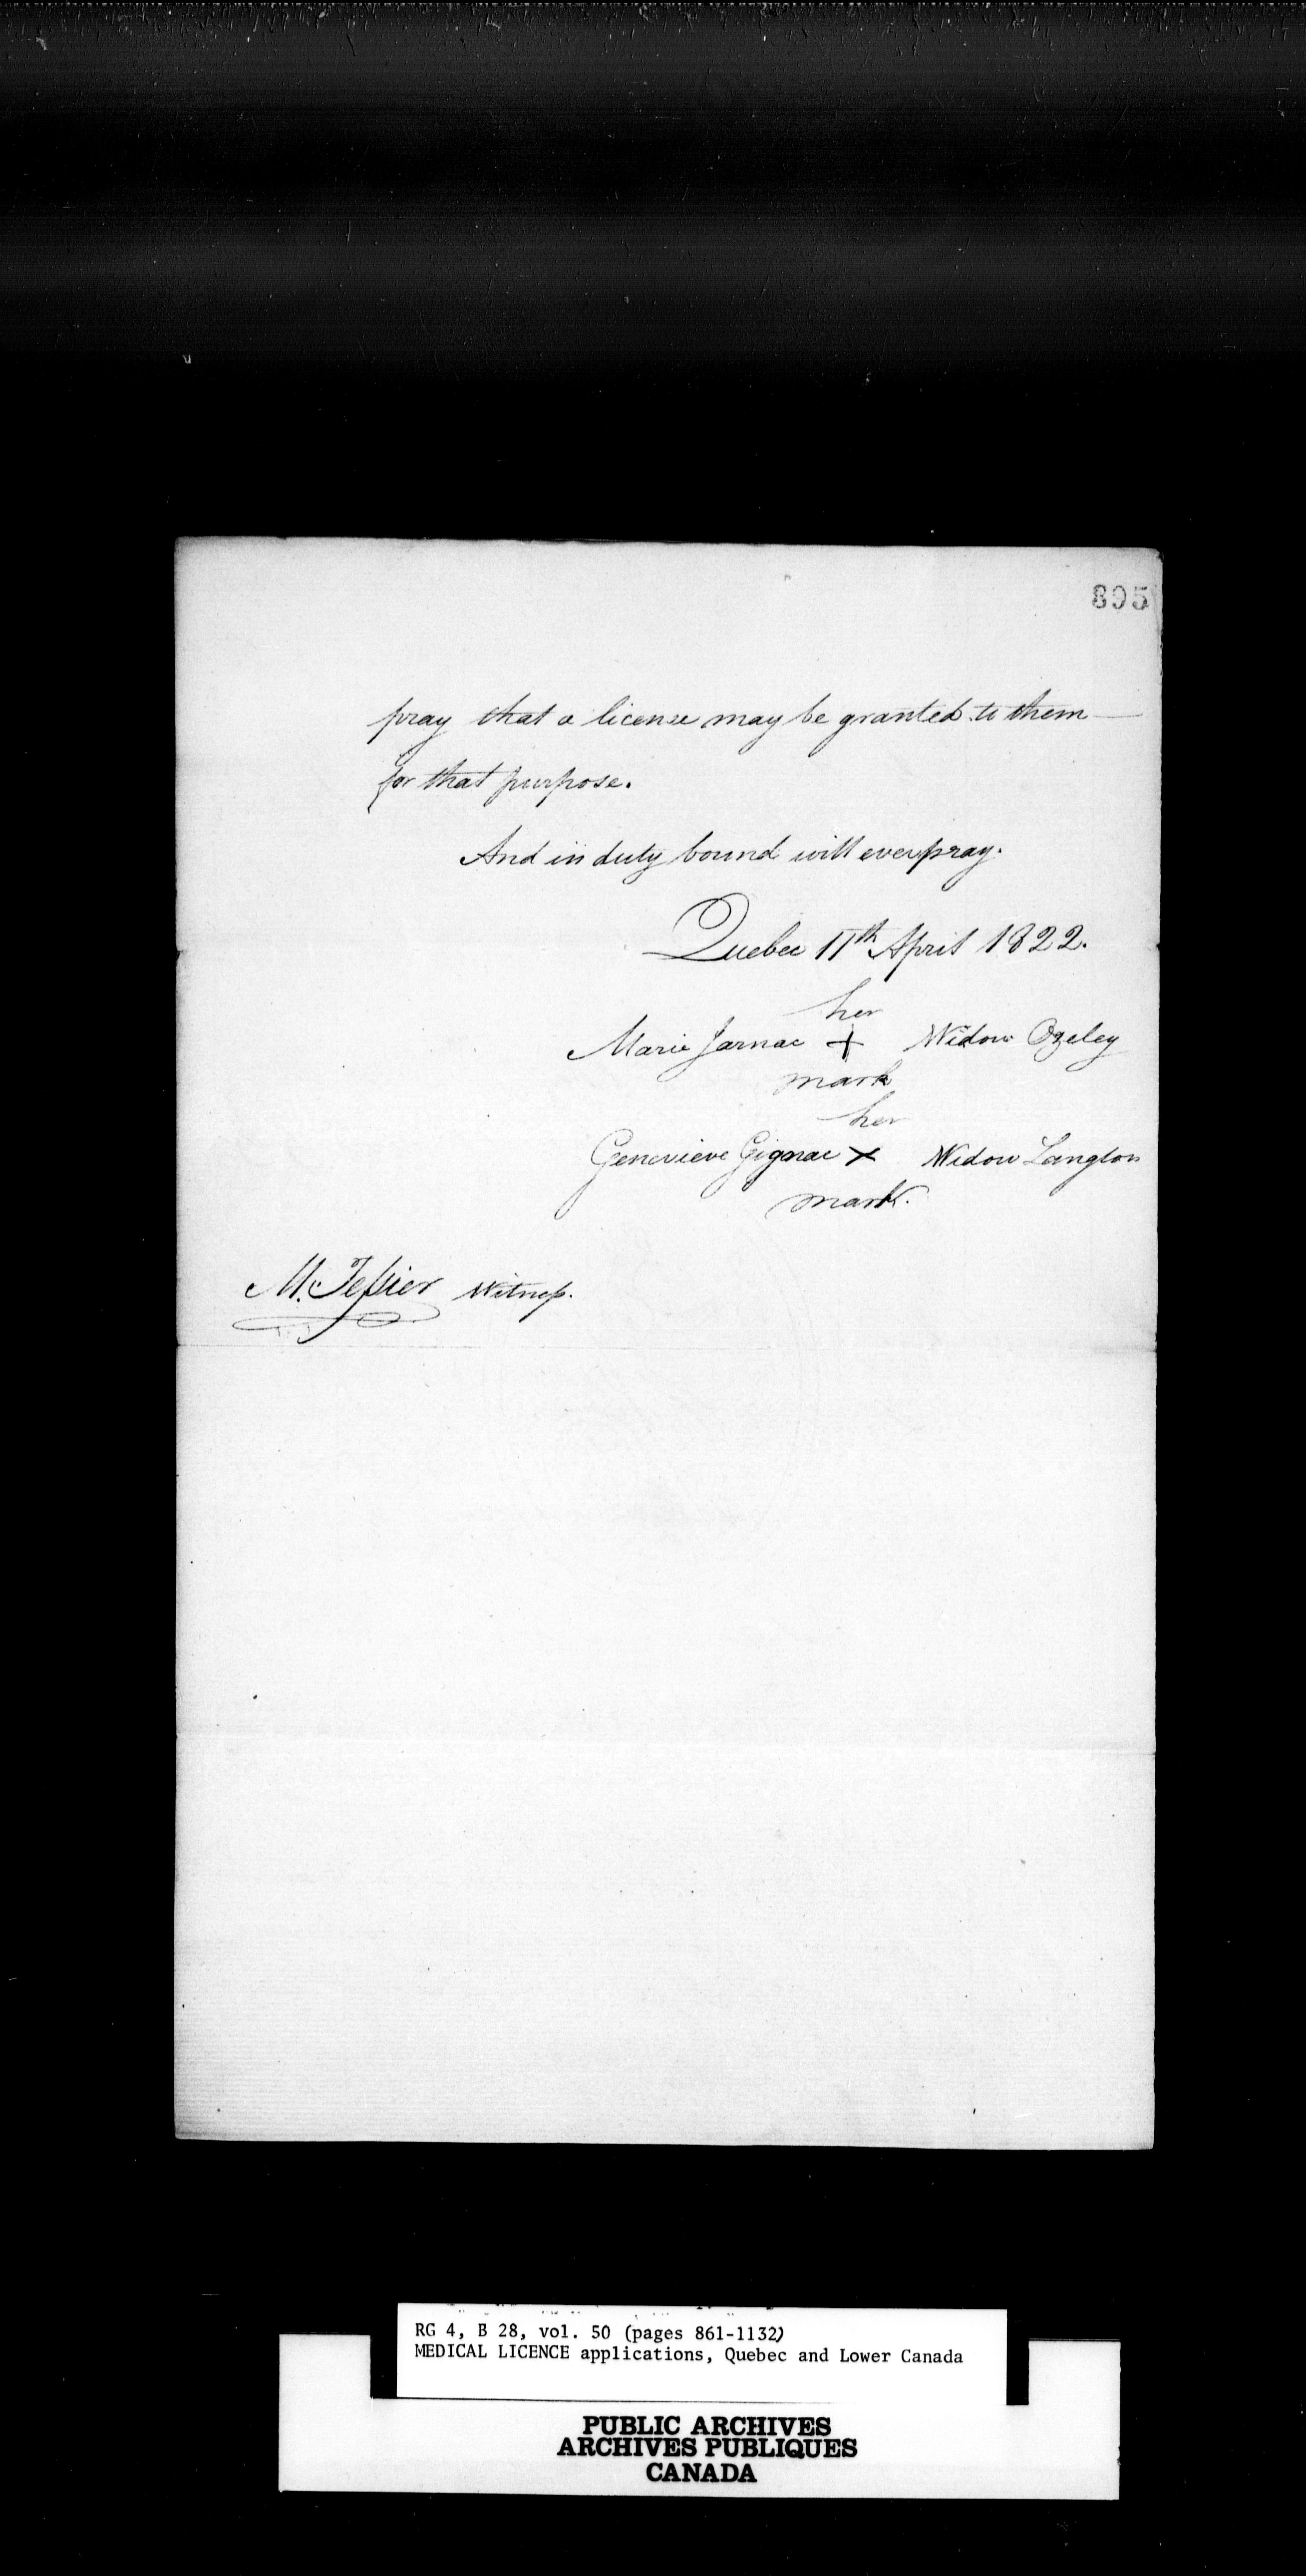 895
pray that a license may be granted to them
for that purpose.
And in duty bound will ever pray.
Quebec 11th April 1822.
her
Marie Jarnac + Widow Ozeley
mark
her
Genevieve Gignac x Widow Langlon
mark.
M. Teſsier Witneſs.
RG 4, B 28, vol. 50 (pages 861-1132)
MEDICAL LICENCE applications, Quebec and Lower Canada
PUBLIC ARCHIVES
ARCHIVES PUBLIQUES
CANADA